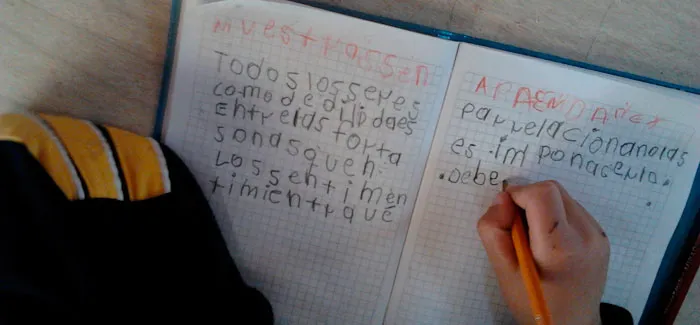 MVestrassen
Todos losseres
comodedHidaes
Entrelas forta
sonasqueh.
Los sentimen
timientrque
APAENDA
parrelacionanolas
es imponacenlo.
.Debe